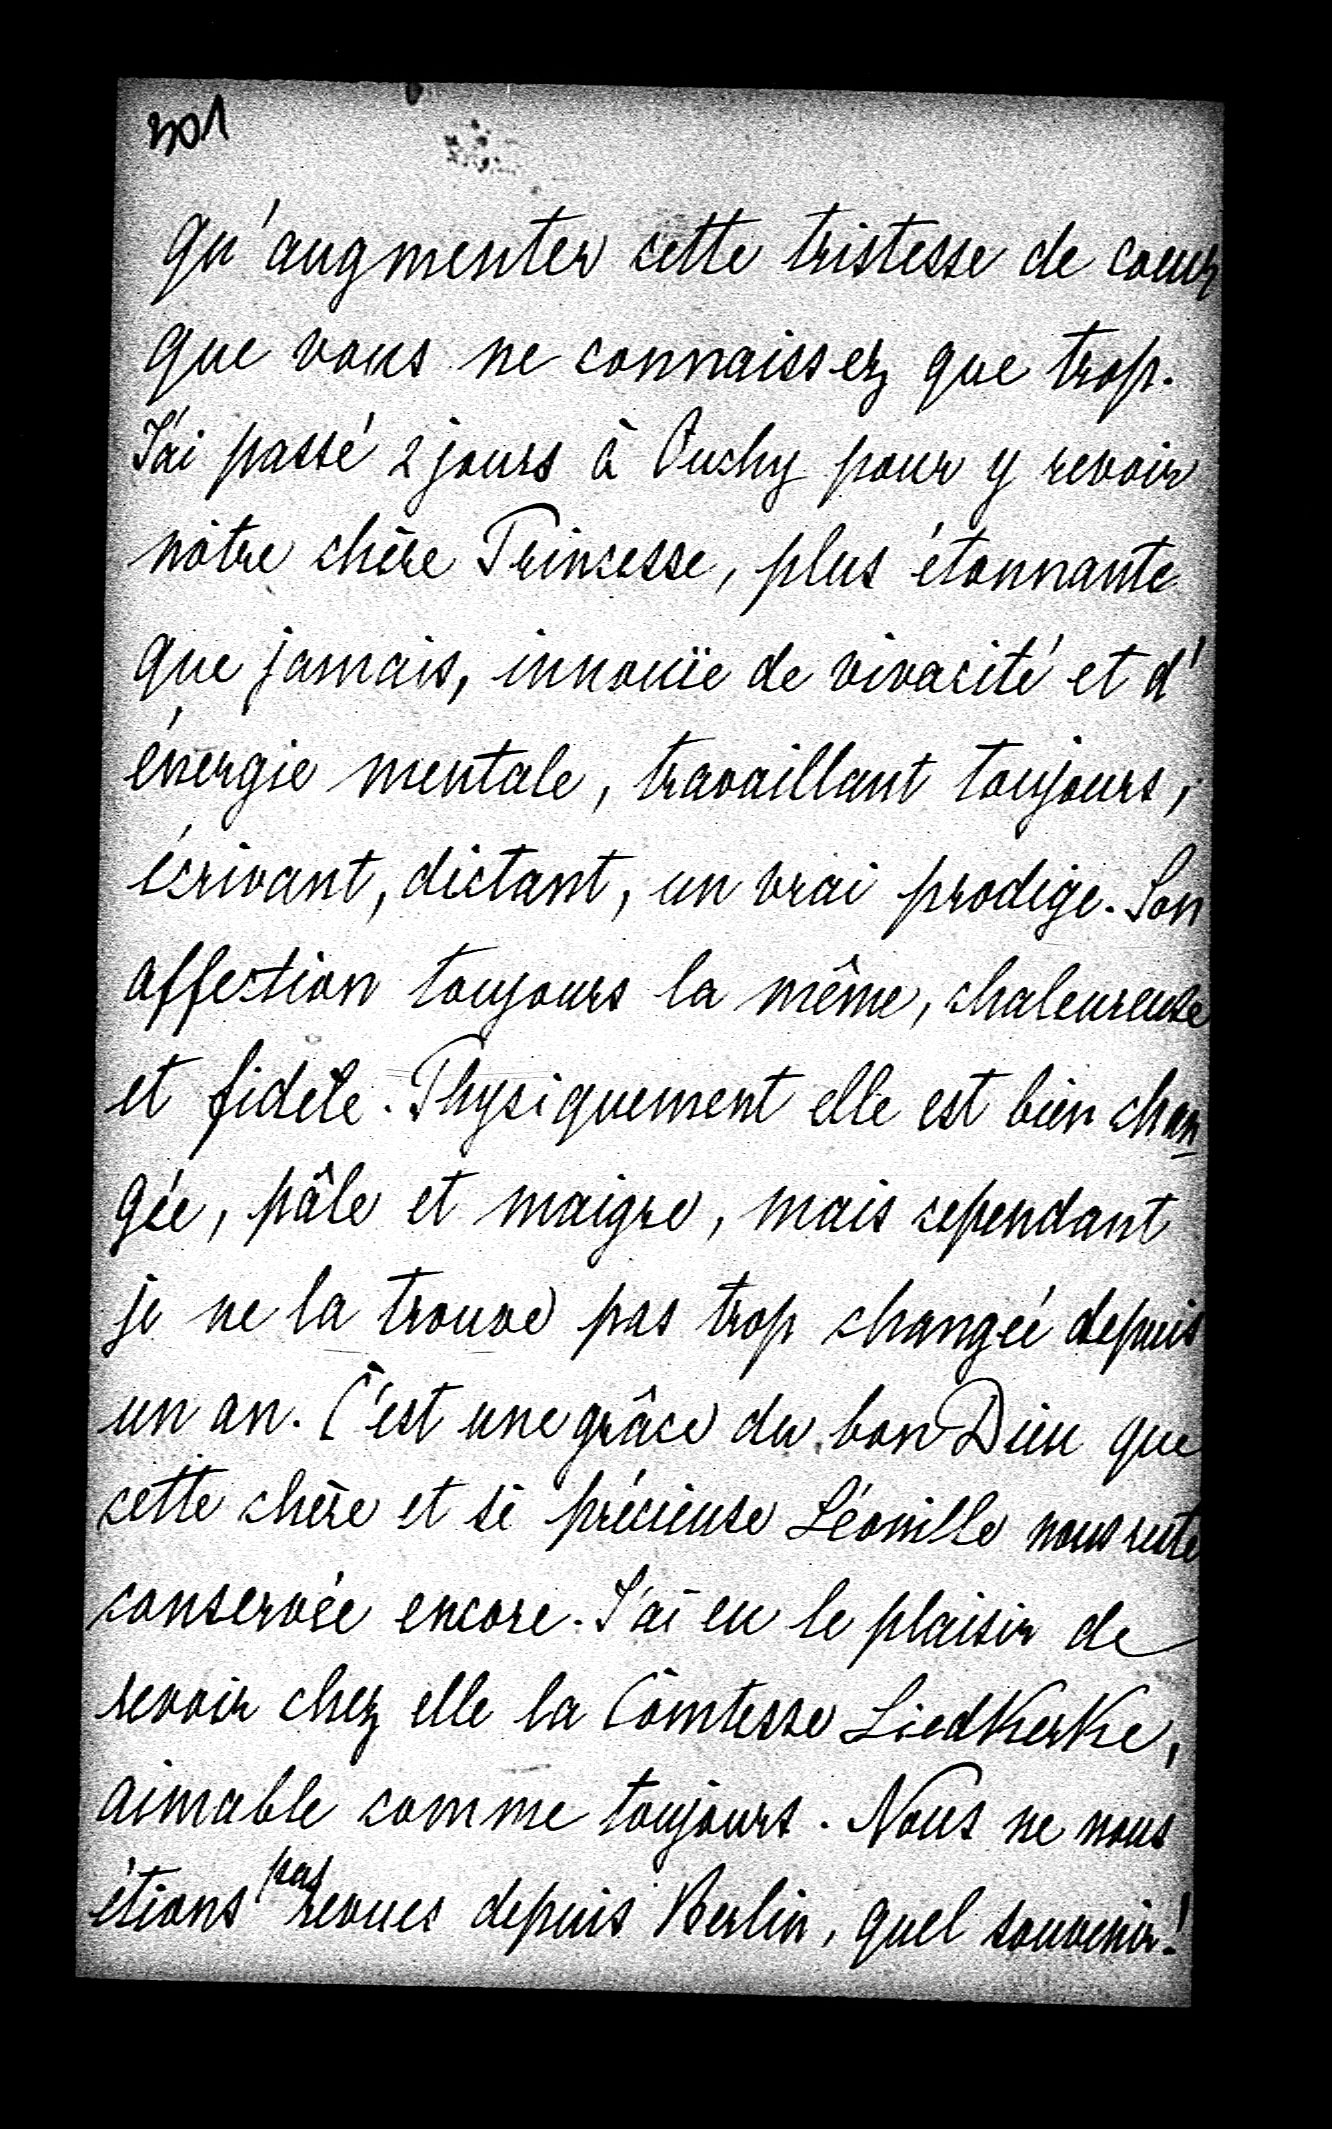 301
qu'augmenter cette tristesse de coeur
que vous ne connaissez que trop.
J'ai passé 2 jours à Ouchy pour y revoir
nôtre chère Princesse, plus étonnante
que jamais, innouïe de vivacité et d'
énergie mentale, travaillant toujours,
écrivant, dictant, un vrai prodige. Son
affection toujours la même, chaleureuse
et fidèle. Physiquement elle est bien chan
gée, pâle et maigre, mais cependant
je ne la trouve pas trop changée depuis
un an. C'est une grâce du bon Dieu que
cette chère et si précieuse Léonille nous reste
conservée encore. J'ai eu le plaisir de
revoir chez elle la Comtesse Liedkerke,
aimable comme toujours. Nous ne nous
étions pas revues depuis Berlin, quel souvenir!